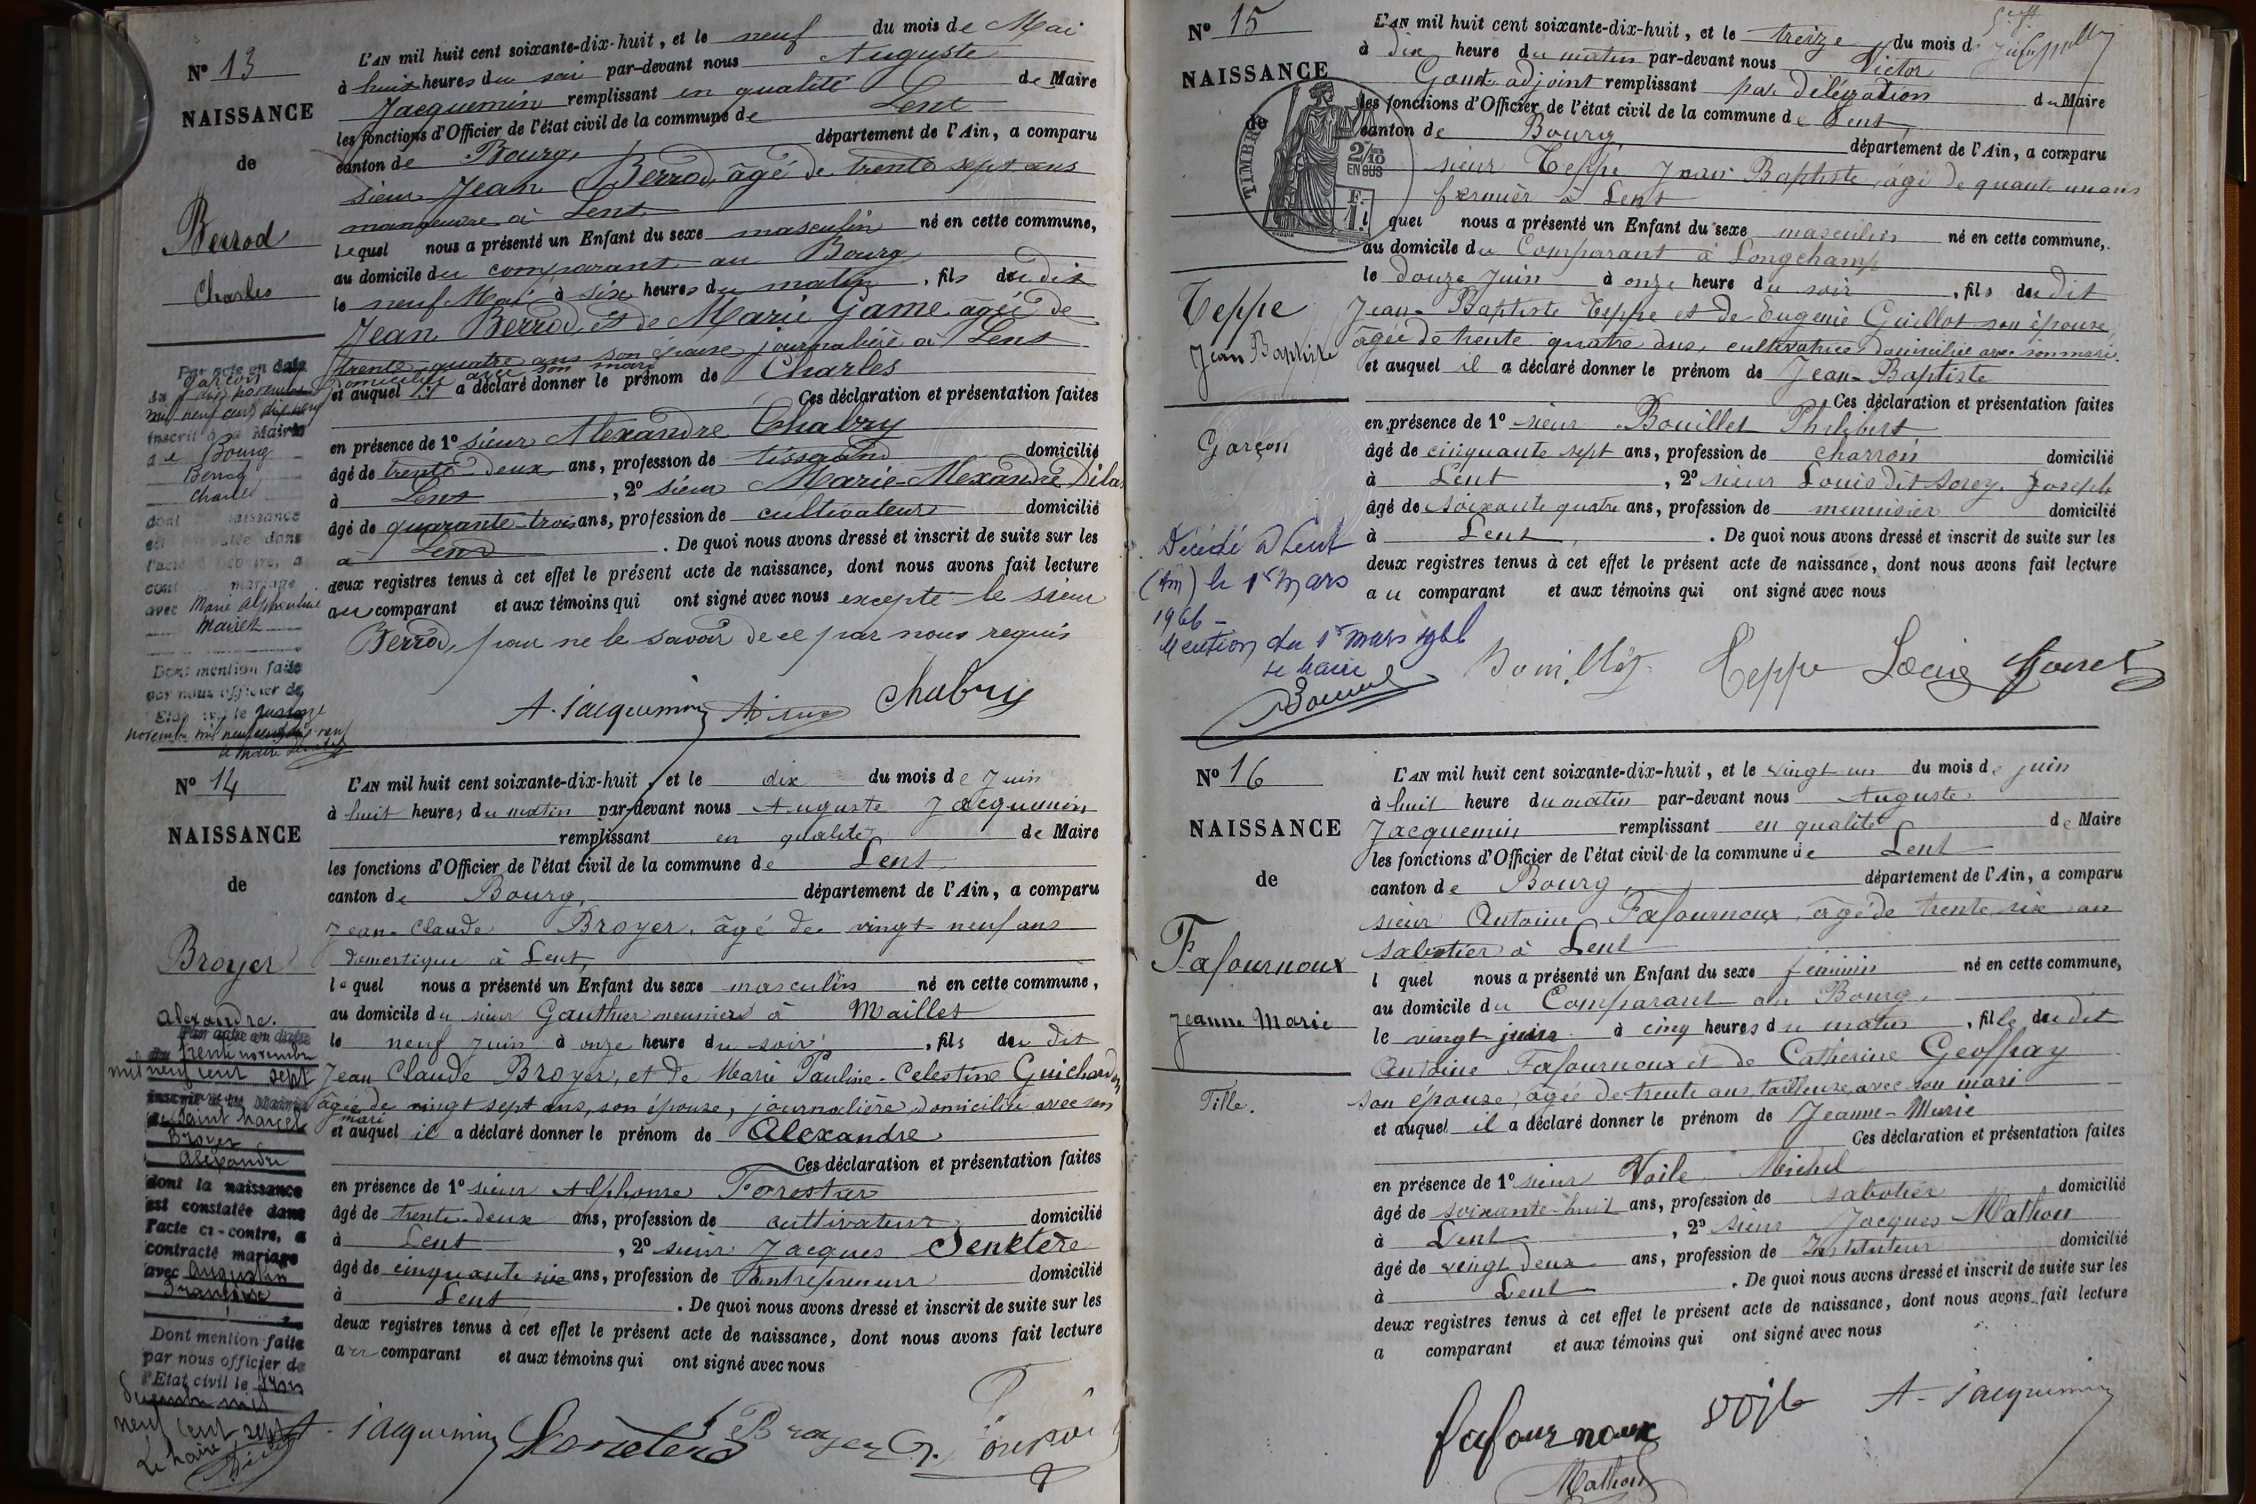 Nº 13
NAISSANCE
de
Berrod
Charles
Garçon
L'AN mil huit cent soixante-dix-huit, et le neuf du mois de Mai
à huit heures du soir par-devant nous Auguste
Jacquemin remplissant en qualité de Maire
les fonctions d'Officier de l'état civil de la commune de Lent
canton de Bourg, département de l'Ain, a comparu
sieur Jean Berrod, âgé de trente sept ans
manœuvre à Lent
lequel nous a présenté un Enfant du sexe masculin né en cette commune,
au domicile du comparant au Bourg
le neuf Mai à six heures du matin, fils du dit
Jean Berrod et de Marie Game âgée de
trente quatre ans son épouse journalière à Lent
domiciliée avec son mari
et auquel il a déclaré donner le prénom de Charles
Ces déclaration et présentation faites
en présence de 1º sieur Alexandre Chabry
âgé de trente deux ans, profession de tisserand domicilié
à Lent, 2º sieur Marie-Alexandre
âgé de quarante-trois ans, profession de cultivateur domicilié
à Lent. De quoi nous avons dressé et inscrit de suite sur les
deux registres tenus à cet effet le présent acte de naissance, dont nous avons fait lecture
au comparant et aux témoins qui ont signé avec nous excepté le sieur
Berrod, pour ne le savoir de ce par nous requis
A. Jacquemin Chabry
Par acte en date
du dix novembre
mil neuf cent dix neuf
inscrit à la Mairie
de Bourg
Berrod
Charles
dont la naissance
est constatée dans
l'acte ci-contre, a
contracté mariage
avec Marie Alphonsine
Dont mention faite
par nous officier de
l'Etat civil le quinze
novembre mil neuf cent dix neuf
le Maire
Nº 14
NAISSANCE
de
Broyer
Alexandre.
L'AN mil huit cent soixante-dix-huit, et le dix du mois de Juin
à huit heures du matin par-devant nous Auguste Jacquemin
remplissant en qualité de Maire
les fonctions d'Officier de l'état civil de la commune de Lent
canton de Bourg, département de l'Ain, a comparu
Jean-Claude Broyer, âgé de vingt-neuf ans
domestique à Lent,
lequel nous a présenté un Enfant du sexe masculin né en cette commune,
au domicile du sieur Gauthier meunier à Maillet
le neuf Juin à onze heure du soir, fils du dit
Jean Claude Broyer, et de Marie Pauline-Celestine Guichardon
âgée de vingt sept ans, son épouse, journalière domiciliée avec son
mari
et auquel il a déclaré donner le prénom de Alexandre
Ces déclaration et présentation faites
en présence de 1º sieur Alphonse Forestier
âgé de trente-deux ans, profession de cultivateur domicilié
à Lent, 2º sieur Jacques Senetère
âgé de cinquante six ans, profession de entrepreneur domicilié
à Lent. De quoi nous avons dressé et inscrit de suite sur les
deux registres tenus à cet effet le présent acte de naissance, dont nous avons fait lecture
au comparant et aux témoins qui ont signé avec nous
A. Jacquemin Broyer
Par acte en date
du trente novembre
mil neuf cent sept
inscrit à la Mairie
Broyer
Alexandre
dont la naissance
est constatée dans
l'acte ci-contre, a
contracté mariage
avec Augustin
Françoise
Dont mention faite
par nous officier de
l'Etat civil le
mil
neuf cent sept
Le Maire
Nº 15
NAISSANCE
de
Teppe
Jean Baptiste
Garçon
TIMBRE
2/10
EN SUS
F.
1.
L'AN mil huit cent soixante-dix-huit, et le treize du mois de Juin
à dix heure du matin par-devant nous Victor
adjoint remplissant par délégation du Maire
les fonctions d'Officier de l'état civil de la commune de Lent,
canton de Bourg, département de l'Ain, a comparu
sieur Teppe Jean Baptiste, âgé de quarante un ans
fermier à Lent
lquel nous a présenté un Enfant du sexe masculin né en cette commune,
au domicile du Comparant à Longchamp
le douze Juin à onze heure du soir, fils du dit
Jean-Baptiste Teppe et de Eugénie Guillot son épouse
âgée de trente quatre ans, cultivatrice domiciliée avec son mari.
et auquel il a déclaré donner le prénom de Jean-Baptiste
Ces déclaration et présentation faites
en présence de 1º sieur Bouillet Philibert
âgé de cinquante sept ans, profession de charron domicilié
à Lent, 2º sieur Louis dit Sorey Joseph
âgé de soixante quatre ans, profession de menuisier domicilié
à Lent. De quoi nous avons dressé et inscrit de suite sur les
deux registres tenus à cet effet le présent acte de naissance, dont nous avons fait lecture
au comparant et aux témoins qui ont signé avec nous
Bouillet Teppe
Décédé à Lent
(Ain) le 1er mars
1966 -
Mention du 1er mars 1966
Le Maire
Nº 16
NAISSANCE
de
Fafournoux
Jeanne Marie
Fille.
L'AN mil huit cent soixante-dix-huit, et le vingt un du mois de juin
à huit heure du matin par-devant nous Auguste
Jacquemin remplissant en qualité de Maire
les fonctions d'Officier de l'état civil de la commune de Lent
canton de Bourg, département de l'Ain, a comparu
sieur Antoine Fafournoux, âgé de trente six ans
sabotier à Lent
l quel nous a présenté un Enfant du sexe féminin né en cette commune,
au domicile du Comparant au Bourg,
le vingt juin à cinq heures du matin, fille du dit
Antoine Fafournoux et de Catherine Geoffray
son épouse, âgée de trente ans, tailleuse, avec son mari
et auquel il a déclaré donner le prénom de Jeanne-Marie
Ces déclaration et présentation faites
en présence de 1º sieur Voile Michel
âgé de soixante-huit ans, profession de sabotier domicilié
à Lent, 2º sieur Jacques Mathon
âgé de vingt deux ans, profession de Instituteur domicilié
à Lent. De quoi nous avons dressé et inscrit de suite sur les
deux registres tenus à cet effet le présent acte de naissance, dont nous avons fait lecture
a comparant et aux témoins qui ont signé avec nous
fafournoux voile A. Jacquemin
Mathon